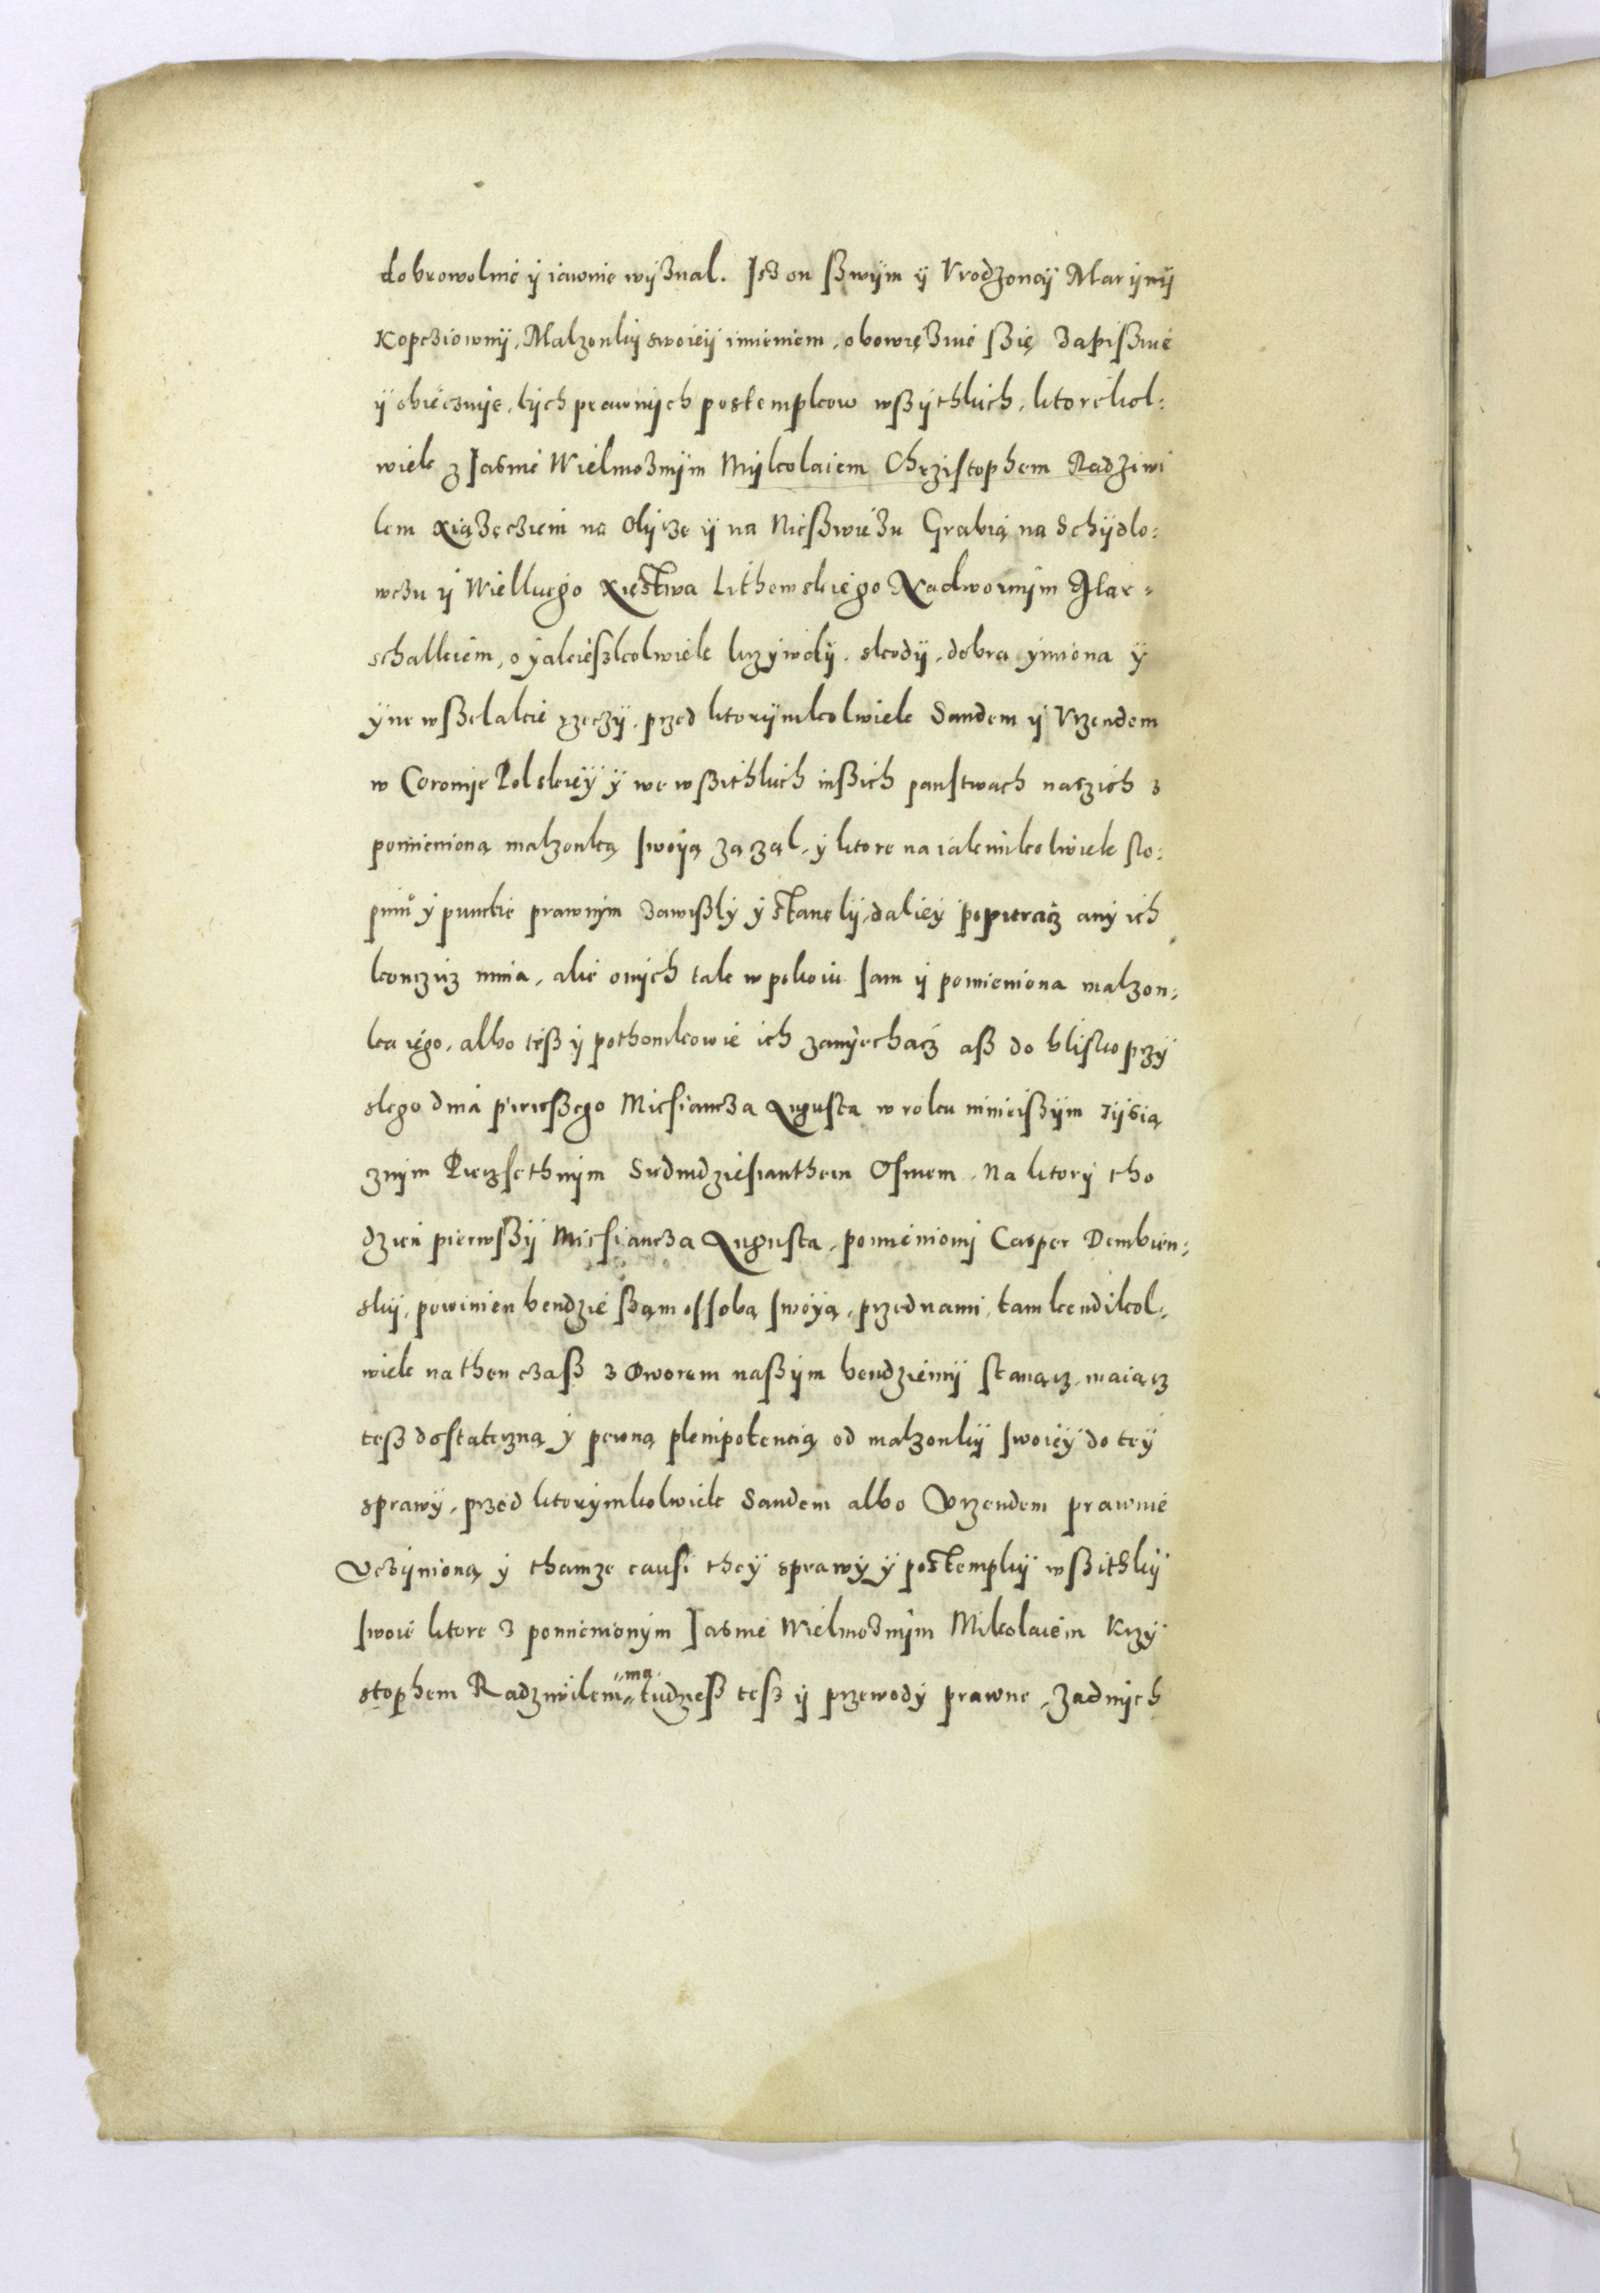 dobrowolnie ÿ iawnie wÿznal. Isz on swÿm ÿ Vrodzoneÿ Marÿnÿ
Kopcziownÿ, Malzonkÿ swoieÿ imieniem, obowięzuie ßię zapißuie
ÿ obieczuÿe, tÿch prawnÿch postempkow wßÿthkich, ktorekol=
wiek z Jasnie Wielmoznÿm Mÿkolaiem Chrzistophem Radziwi
lem Xiązęcziem na Olÿcze ÿ na Nießwiezu Grabią na Schÿdlo=
wczu ÿ Wielkiego Xięstwa Lithewskiego Nadwornÿm Mar=
schalkiem, o ÿakießkolwiek krzÿwdÿ, skodÿ, dobra ÿmiona ÿ
ÿne wßelakie rzeczÿ, przed ktorÿmkolwiek Sandem ÿ Vrzendem
w Coronie Polskieÿ ÿ we wßithkich inßich panstwach naszich z
pomienioną malzonką swoÿą zaząl, ÿ ktore na iakimkolwiek sto=
pniu ÿ punctie prawnÿm zawißlÿ ÿ stanelÿ, daliey popieracz anÿ ich
konczicz mia, alie onÿch tak w pokoiu sam ÿ pomieniona malzon=
ka iego, albo teß ÿ pothomkowie ich zanÿechacz aß do blisko przÿ
slego dnia pierwßego Miesiancza Augusta w roku ninieißÿm Tÿsią
cznÿm Pieczsethnÿm Siedmdziesianthem Osmem. Na ktorÿ tho
dzien pierwßÿ Miesiancza Augusta, pomienionÿ Casper Dembien=
skÿ, powinien bendzie ßąm ossobą swoÿą, przed nami, tam kendikol=
wiek na then czaß z Dworem naßÿm bendziemÿ stanącz, maiącz
teß dostateczną ÿ pewną plenipotencią od malzonkÿ swoieÿ do teÿ
sprawÿ, przed ktorÿmkolwiek Sandem albo Vrzendem prawnie
Vczÿnioną, ÿ thamze causi theÿ sprawÿ ÿ postempkÿ wßithkÿ
swoie ktore z pomienionÿm Jasnie Wielmoznÿm Mikolaiem Krzÿ
stophem Radziwilem ma tudzieß teß ÿ przewodÿ prawne, zadnÿch